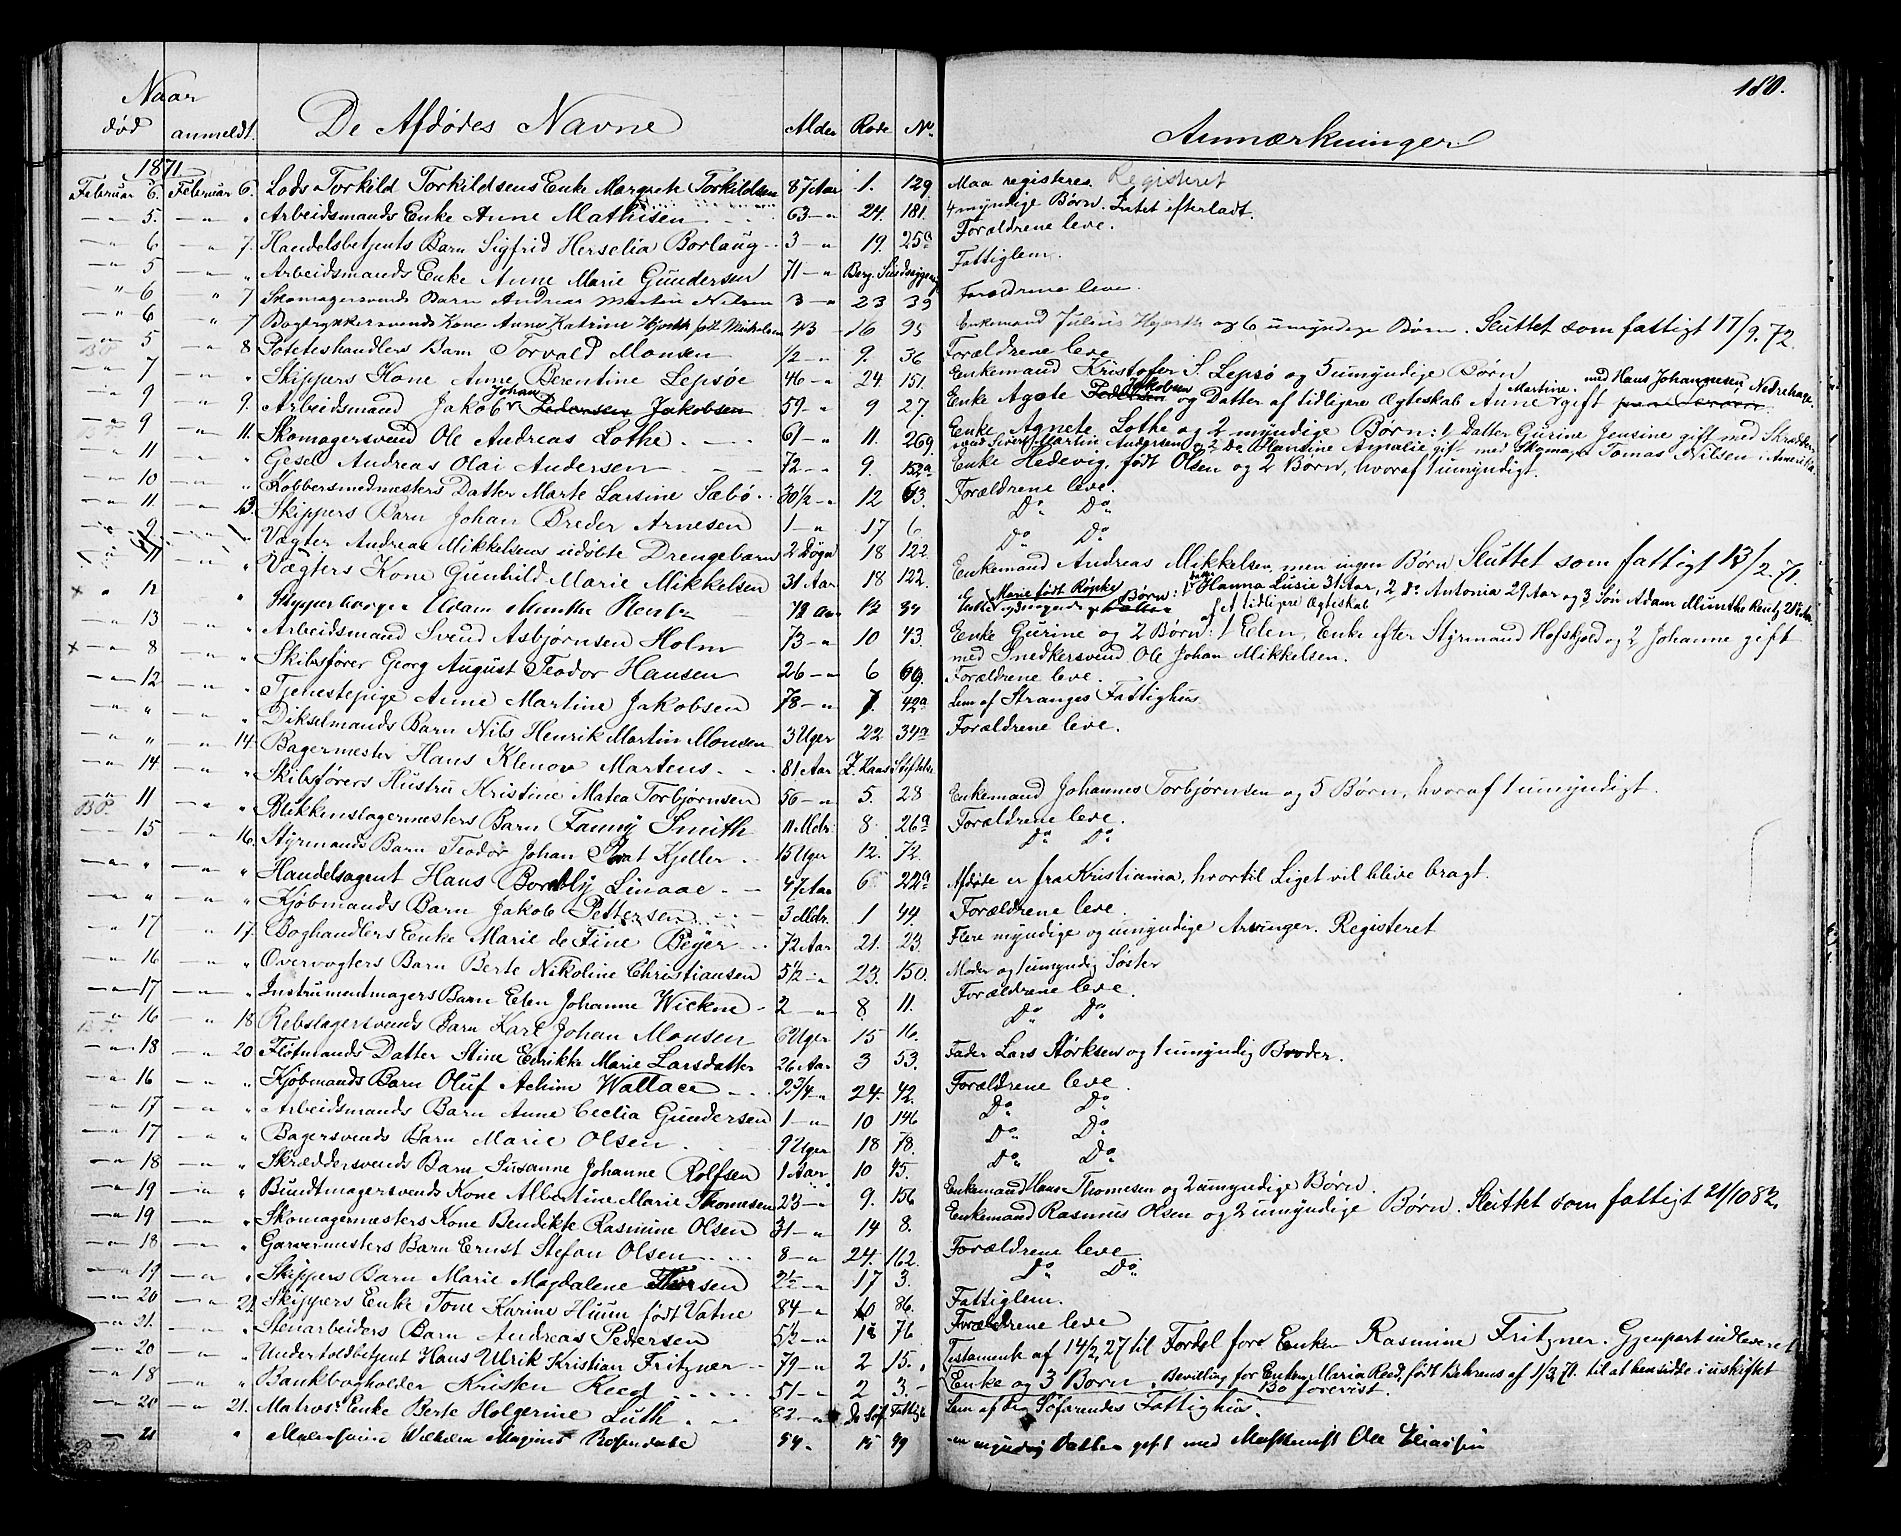 180.
Naar
død anmeldt. De Afdødes Navne Alder Rode No. Anmærkninger
1871
Februar 6. Februar 6. Lods Torkild Torkildsens Enke Margrete Torkildsen 87 Aar 1. 129. Maa registeres. Registeret
— " 5 — " " Arbeidsmands Enke Anne Mathisen 63 — " 24. 181. 4 myndige Børn. Intet efterladt.
— " 6 — " 7. Handelsbetjents Barn Sigfrid Herselia Borlaug 3 — " 19. 25c Forældrene leve.
— " 5 — " " Arbeidsmands Enke Anne Marie Gundersen 71 — " Berg. Sindssygeasyl Fattiglem.
— " 6 " 7 Skomagersvends Barn Andreas Martin Nilsen 3 — " 23 39 Forældrene leve.
— " 6 " 7 Bogtrykkersvends Kone Anne Katrine Hjorth født Mickelsen 43 — 16 95 Enkemand Julius Hjorth og 6 umyndige Børn. Sluttet som fattigt 17/9. 72.
— " 5 — " 8 Poteteshandlers Barn Torvald Monsen 1/2 — " 9. 36 Forældrene leve
— " 7 — " " Skippers Kone Anne Berentine Lepsøe 46 — " 24. 151. Enkemand Kristofer S. Lepsø og 5 umyndige Børn
— " 9 — " 9. Arbeidsmand Jakob Johan Pedersen Jakobsen 59 — " 9 27. Enke Agate Pedersen Jakobsen og Datter af tidligere Ægteskab Anne Martine gift med Hans Johannesen Nedrehage.
— " 9 — " 11. Skomagersvend Ole Andreas Lothe 61 — " 11. 269. Enke Agnete Lothe og 2 myndige Børn: 1 Datter Gurine Jensine gift med Skrædder-
svend Sivert Martin Andersen og 2 Do Blandine Amalie gift med Skomager Tomas Nilsen i Amerika.
— " 11 — " " Gesel Andreas Olai Andersen 72 — " 9. 152a Enke Hedevig, født Olsen og 2 Børn, hvoraf 1 umyndigt.
— " 10 — " " Kobbersmedmesters Datter Marte Larsine Sæbø 30 1/2 — " 12 63. Forældrene leve.
— " 11 — " 13. Skippers Barn Johan Breder Arnesen 1 — " 17 6 Do Do
— " 9 — " Vægter Andreas Mikkelsens udøbte Drengebarn 2 Døgn 18 122 Do Do
— " 11 — " " Vægters Kone Gunhild Marie Mikkelsen 31 Aar 18 122. Enkemand Andreas Mikkelsen, men ingen Børn Sluttet som fattigt 13/2. 71.
× " 12 " Adam Munthe Rentz 72 Aar 12 34 Enke Marie født Røpke Børn: 1 Datter Hanna Lusie 31 Aar, 2 do Antonia 29 Aar og 3 Søn Adam Munthe Rentz 21 Aar.
af et tidligere Ægteskab
— " 13 — " " Arbeidsmand Svend Asbjørnsen Holm 73 — " 10 43. Enke Gurine og 2 Børn: 1 Elen, Enke efter Styrmand Hofskjold og 2 Johanne gift
med Snedkersvend Ole Johan Mikkelsen.
× — " 8 — " " Skibsfører Georg August Teodor Hansen 26 — " 6 69. Forældrene leve.
— " 12 — " " Tjenestepige Anne Martine Jakobsen 78 — " 7. 42a Lem af Stranges Fattighus
— " " — " " Dikselmands Barn Nils Henrik Martin Monsen 3 Uger 22 34a Forældrene leve.
— " " — " 14. Bagermester Hans Klenov Martens 81 Aar Z. Kaas Stiftelse
— " 14 — " " Skibsførers Hustru Kristine Matea Torbjørnsen 56 — " 5. 28 Enkemand Johannes Torbjørnsen og 5 Børn, hvoraf 1 umyndigt.
B.P. 11 — " " Blikkenslagermesters Barn Fanny Smith 11 Mdr. 8 26a Forældrene leve.
— " 15 — " 16. Styrmands Barn Teodor Johan Prat Kjeller 15 Uger 12. 72. Do Do
— " " — " " Handelsagent Hans Bordly Linaae 47 Aar 6 22a Afdøde er fra Kristiania, hvortil Liget vil blive bragt.
— " " — " " Kjøbmands Barn Jakob Pettersen 3 Mdr. 1 44. Forældrene leve.
— " 17 " 17. Boghandlers Enke Marie de Fine Beyer 72 Aar 21. 23. Flere myndige og umyndige Arvinger. Registeret
— " 16 — " " Overvogters Barn Berte Nikoline Christiansen 5 1/2 — " 23. 150. Moder og 1 umyndig Søster
— " 17 — " " Instrumentmagers Barn Elen Johanne Wickne 2 — " 8. 11. Forældrene leve.
— " 16 — " 18 Rebslagersvends Barn Karl Johan Monsen 6 Uger 15 16. Do Do
— " 18 — " 20. Fløtmands Datter Stine Edrikke Marie Larsdatter 26 Aar 3 53. Fader Lars Størksen og 1 umyndig Broder.
— " 16 — " " Kjøbmands Barn Oluf Achim Wallace 2 3/4 — " 24. 42. Forældrene leve.
— " 17 — " " Arbeidsmands Barn Anne Cecilia Gundersen 1 — " 10 146 Do Do
— " 17 — " " Bagersvends Barn Marie Olsen 9 Uger 18 78. Do Do
— " 18 — " " Skræddersvends Barn Susanne Johanne Rolfsen 1 Aar 10 45. Do Do
— " 19 — " " Bundtmagersvends Kone Albertine Marie Thomesen 23 — " 9. 156 Enkemand Hans Thomesen og 2 umyndige Børn.
— " 19 — " " Skomagermesters Kone Bendikte Rasmine Olsen 31 — " 14 8. Enkemand Rasmus Olsen og 2 umyndige Børn. Sluttet som fattigt 21/10 82.
— " 18 — " " Garvermesters Barn Ernst Stefan Olsen 8 — " 24. 162. Forældrene leve
— " 19 — " " Skippers Barn Marie Magdalene Thorsen 2 1/2 — " 17 3. Do Do
— " 20 — " 21. Skippers Enke Tone Karine Huun født Vatne 84 — " 10 86. Fattiglem.
— " 21. — " " Stenarbeiders Barn Andreas Pedersen 5 1/2 — " 18 76 Forældrene leve
— " 20 — " " Undertoldbetjent Hans Ulrik Kristian Fritzner 79 — " 2 15. Testament af 14/2 27 til Fordel for Enken Rasmine Fritzner. Gjenpart indleveret
— " 18 — " " Bankbogholder Kristen Reed 51 — " 2 3. Enke og 3 Børn. Bevilling for Enken Maria Reed, født Behrens af 1/3 71. til at hensidde i uskiftet
Bo forevist.
— " 20 — " 21. Matros Enke Berte Holgerine Luth 82 — " De Søf. Fattigh. Lem af De Søfarendes Fattighus.
21 " Wilhelm Magnus Rosendahl 54 15 49 myndig Datter gift med Maskinist Ole Eliassen